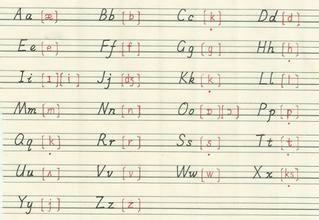 Aa [æ] Bb [b] Cc [k] Dd [d]
Ee [e] Ff [f] Gg [g] Hh [h]
Ii [ɪ][i] Jj [dʒ] Kk [k] Ll [l]
Mm [m] Nn [n] Oo [ɒ][ɔ] Pp [p]
Qq [k] Rr [r] Ss [s] Tt [t]
Uu [ʌ] Vv [v] Ww [w] Xx [ks]
Yy [j] Zz [z]